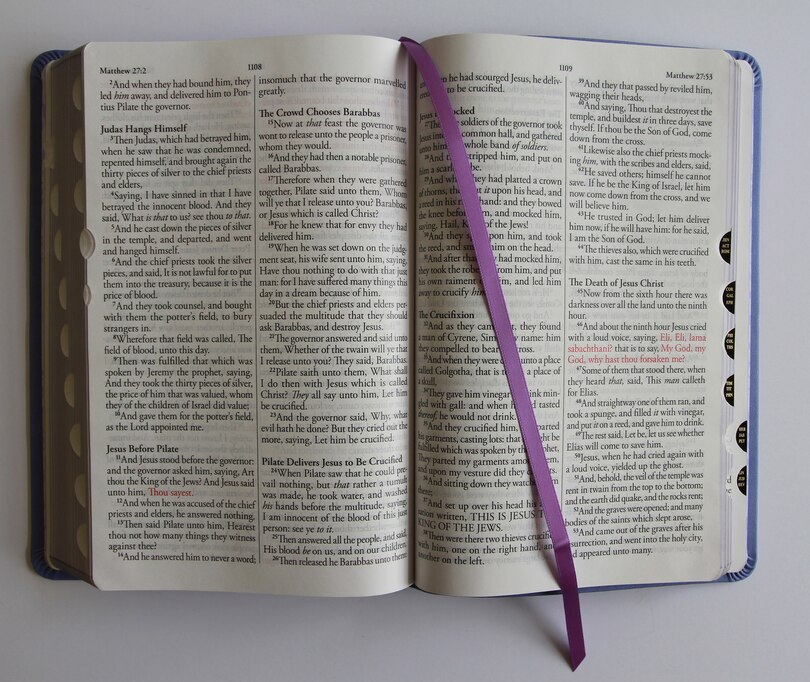 Matthew 27:2
1108
2And when they had bound him, they
led him away, and delivered him to Pon-
tius Pilate the governor.
Judas Hangs Himself
3Then Judas, which had betrayed him,
when he saw that he was condemned,
repented himself, and brought again the
thirty pieces of silver to the chief priests
and elders,
4Saying, I have sinned in that I have
betrayed the innocent blood. And they
said, What is that to us? see thou to that.
5And he cast down the pieces of silver
in the temple, and departed, and went
and hanged himself.
6And the chief priests took the silver
pieces, and said, It is not lawful for to put
them into the treasury, because it is the
price of blood.
7And they took counsel, and bought
with them the potter's field, to bury
strangers in.
8Wherefore that field was called, The
field of blood, unto this day.
9Then was fulfilled that which was
spoken by Jeremy the prophet, saying,
And they took the thirty pieces of silver,
the price of him that was valued, whom
they of the children of Israel did value;
10And gave them for the potter's field,
as the Lord appointed me.
Jesus Before Pilate
11And Jesus stood before the governor:
and the governor asked him, saying, Art
thou the King of the Jews? And Jesus said
unto him, Thou sayest.
12And when he was accused of the chief
priests and elders, he answered nothing.
13Then said Pilate unto him, Hearest
thou not how many things they witness
against thee?
14And he answered him to never a word;
insomuch that the governor marvelled
greatly.
The Crowd Chooses Barabbas
15Now at that feast the governor was
wont to release unto the people a prisoner,
whom they would.
16And they had then a notable prisoner,
called Barabbas.
17Therefore when they were gathered
together, Pilate said unto them, Whom
will ye that I release unto you? Barabbas,
or Jesus which is called Christ?
18For he knew that for envy they had
delivered him.
19When he was set down on the judg-
ment seat, his wife sent unto him, saying,
Have thou nothing to do with that just
man: for I have suffered many things this
day in a dream because of him.
20But the chief priests and elders per-
suaded the multitude that they should
ask Barabbas, and destroy Jesus.
21The governor answered and said unto
them, Whether of the twain will ye that
I release unto you? They said, Barabbas.
22Pilate saith unto them, What shall
I do then with Jesus which is called
Christ? They all say unto him, Let him
be crucified.
23And the governor said, Why, what
evil hath he done? But they cried out the
more, saying, Let him be crucified.
Pilate Delivers Jesus to Be Crucified
24When Pilate saw that he could pre-
vail nothing, but that rather a tumult
was made, he took water, and washed
his hands before the multitude, saying,
I am innocent of the blood of this just
person: see ye to it.
25Then answered all the people, and said,
His blood be on us, and on our children.
26Then released he Barabbas unto them:
1109
Matthew 27:53
he had scourged Jesus, he deliv-
to be crucified.
Jesus
soldiers of the governor took
common hall, and gathered
whole band of soldiers.
stripped him, and put on
a scarlet
they had platted a crown
of thorns, it upon his head, and
a reed and they bowed
the knee him, and mocked him,
saying, Hail, of the Jews!
30And they upon him, and took
the reed, and him on the head.
31And after had mocked him,
they took the from him, and put
his own raiment and led him
away to crucify
The Crucifixion
32And as they they found
a man of Cyrene, name: him
they compelled to bear
33And when they were unto a place
called Golgotha, that is a place of
a skull,
34They gave him vinegar mingled
with gall: and when he tasted
thereof, he would not drink.
35And they crucified him, parted
his garments, casting lots: that be
fulfilled which was spoken by the
They parted my garments
and upon my vesture did they
36And sitting down they watched
there;
37And set up over his head his
written, THIS IS JESUS
KING OF THE JEWS.
38Then were there two thieves
with him, one on the right hand, and
another on the left.
39And they that passed by reviled him,
wagging their heads,
40And saying, Thou that destroyest the
temple, and buildest it in three days, save
thyself. If thou be the Son of God, come
down from the cross.
41Likewise also the chief priests mock-
ing him, with the scribes and elders, said,
42He saved others; himself he cannot
save. If he be the King of Israel, let him
now come down from the cross, and we
will believe him.
43He trusted in God; let him deliver
him now, if he will have him: for he said,
I am the Son of God.
44The thieves also, which were crucified
with him, cast the same in his teeth.
The Death of Jesus Christ
45Now from the sixth hour there was
darkness over all the land unto the ninth
hour.
46And about the ninth hour Jesus cried
with a loud voice, saying, Eli, Eli, lama
sabachthani? that is to say, My God, my
God, why hast thou forsaken me?
47Some of them that stood there, when
they heard that, said, This man calleth
for Elias.
48And straightway one of them ran, and
took a spunge, and filled it with vinegar,
and put it on a reed, and gave him to drink.
49The rest said, Let be, let us see whether
Elias will come to save him.
50Jesus, when he had cried again with
a loud voice, yielded up the ghost.
51And, behold, the veil of the temple was
rent in twain from the top to the bottom;
and the earth did quake, and the rocks rent;
52And the graves were opened; and many
bodies of the saints which slept arose,
53And came out of the graves after his
resurrection, and went into the holy city,
and appeared unto many.